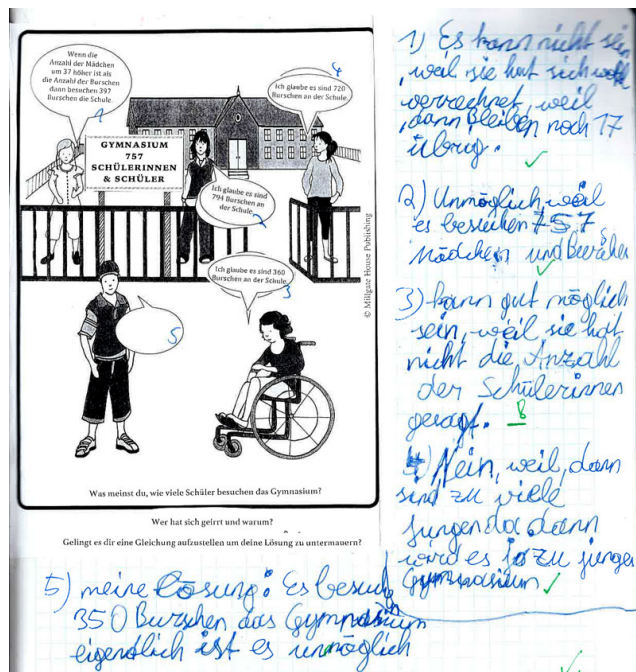 Wenn die
Anzahl der Mädchen
um 37 höher ist als
die Anzahl der Burschen
dann besuchen 397
Burschen die Schule.
1
4
Ich glaube es sind 720
Burschen an der Schule.
GYMNASIUM
757
SCHÜLERINNEN
& SCHÜLER
Ich glaube es sind
794 Burschen an
der Schule.
2
Ich glaube es sind 360
Burschen an der Schule.
3
5
© Millgate House Publishing
Was meinst du, wie viele Schüler besuchen das Gymnasium?
Wer hat sich geirrt und warum?
Gelingt es dir eine Gleichung aufzustellen um deine Lösung zu untermauern?
1) Es kann nicht sein
, weil sie hat sich wohl
verrechnet, weil
, dann bleiben noch 17
übrig.
2) Unmöglich, weil
es besuchen 757
Mädchen und Burschen
3) kann gut möglich
sein, weil sie hat
nicht die Anzahl
der Schülerinnen
gesagt. B
4) Nein, weil, dann
sind zu viele
Jungen da, dann
wird es zu
Gymnasium
5) meine Lösung: Es besuchen
350 Burschen das Gymnasium
eigendlich ist es unmöglich